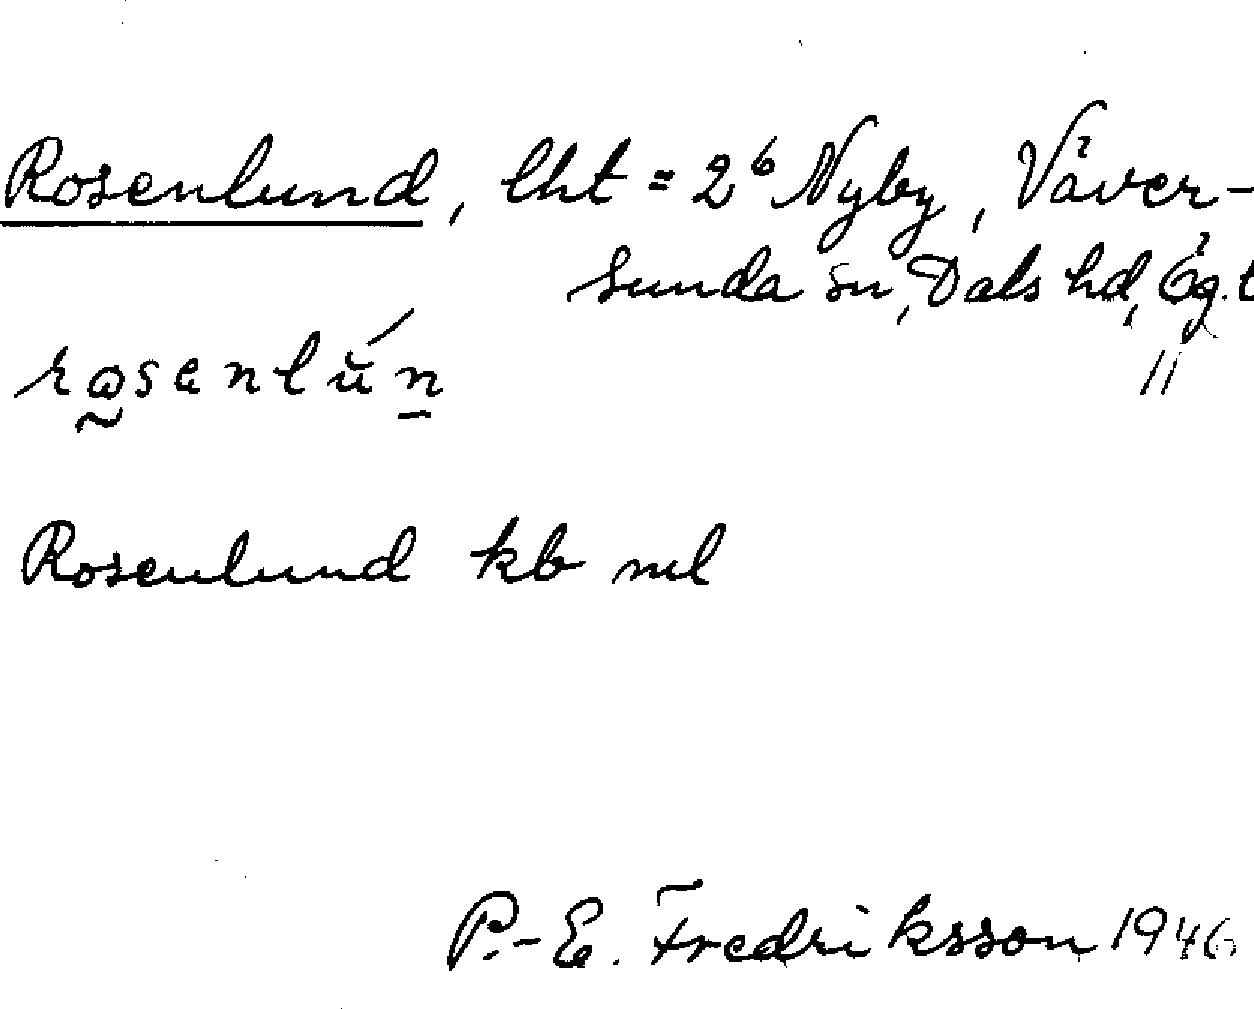 Rosenlund, lht = 2⁶ Nyby, Väver-
sunda sn, Dals hd, Ög.
rosenlŭ́n
Rosenlund kb ml
P.-E. Fredriksson 1946